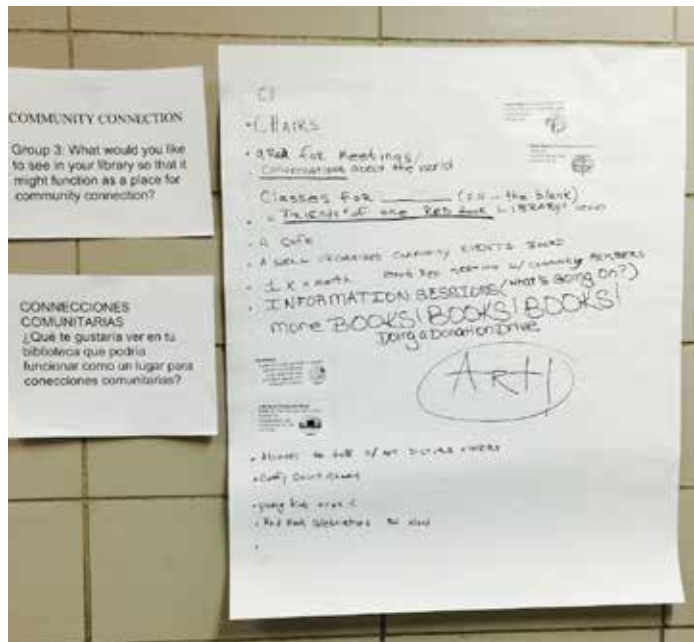 COMMUNITY CONNECTION
Group 3: What would you like
to see in your library so that it
might function as a place for
community connection?
CONNECCIONES
COMUNITARIAS
¿Qué te gustaría ver en tu
biblioteca que podría
funcionar como un lugar para
conecciones comunitarias?
C3
• CHAIRS
for Meetings/
Conversations about the world
Classes FOR ______ ( the blank)
Friends of the Red Hook LIBRARY
• A Cafe
• A WELL ORGANIZED COMMUNITY EVENTS BOARD
• 1 x month meeting w/ community MEMBERS
• INFORMATION SESSIONS (what's going on?)
more BOOKS! BOOKS! BOOKS!
Doing a Donation Drive
ART!
• Comfy
• young kids area
• Red Hook Celebrities